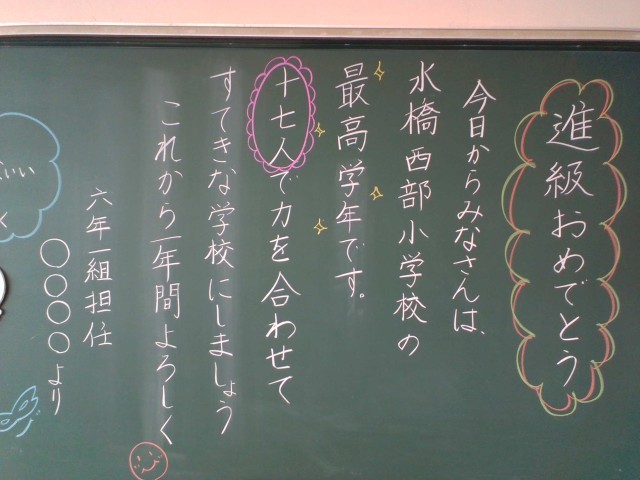 進級おめでとう
今日からみなさんは、
水橋西部小学校の
最高学年です。
十七人で力を合わせて
すてきな学校にしましょう
これから一年間よろしく
六年一組担任
〇〇〇〇より